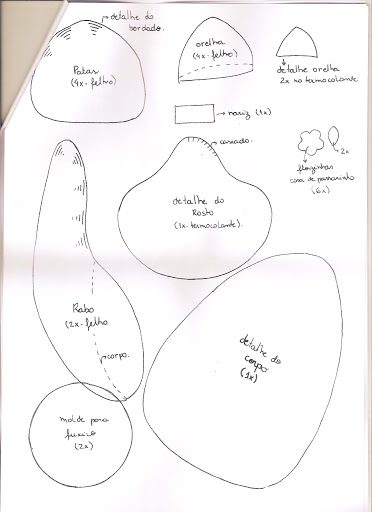 detalhe do
bordado.
Patas
(4x-feltro)
orelha
(4x-feltro)
detalhe orelha
2x no termocolante
nariz (1x)
caseado.
2x
florzinhas
casa de passarinho
(6x)
detalhe do
Rosto
(1x-termocolante).
Rabo
(2x-feltro
corpo.
detalhe do
corpo
(1x)
molde para
fuxico
(2x)